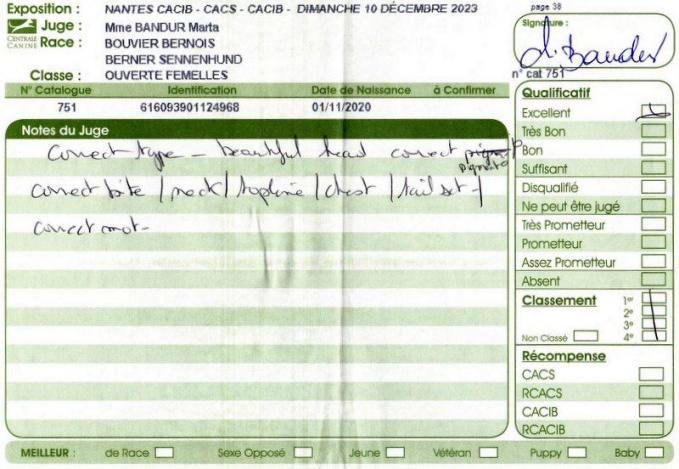 Exposition : NANTES CACIB - CACS - CACIB - DIMANCHE 10 DÉCEMBRE 2023
page 38
Juge : Mme BANDUR Marta
Signature :
CENTRALE CANINE
Race : BOUVIER BERNOIS
BERNER SENNENHUND
Classe : OUVERTE FEMELLES
n° cat 751
N° Catalogue Identification Date de Naissance à Confirmer
751 616093901124968 01/11/2020
Notes du Juge
correct type - beautiful head correct
pigment
correct bite / neck / topline / chest / tail set -/
correct mot-
Qualificatif
Excellent
Très Bon
Bon
Suffisant
Disqualifié
Ne peut être jugé
Très Prometteur
Prometteur
Assez Prometteur
Absent
Classement 1er
2e
3e
Non Classé 4e
Récompense
CACS
RCACS
CACIB
RCACIB
MEILLEUR : de Race Sexe Opposé Jeune Vétéran Puppy Baby